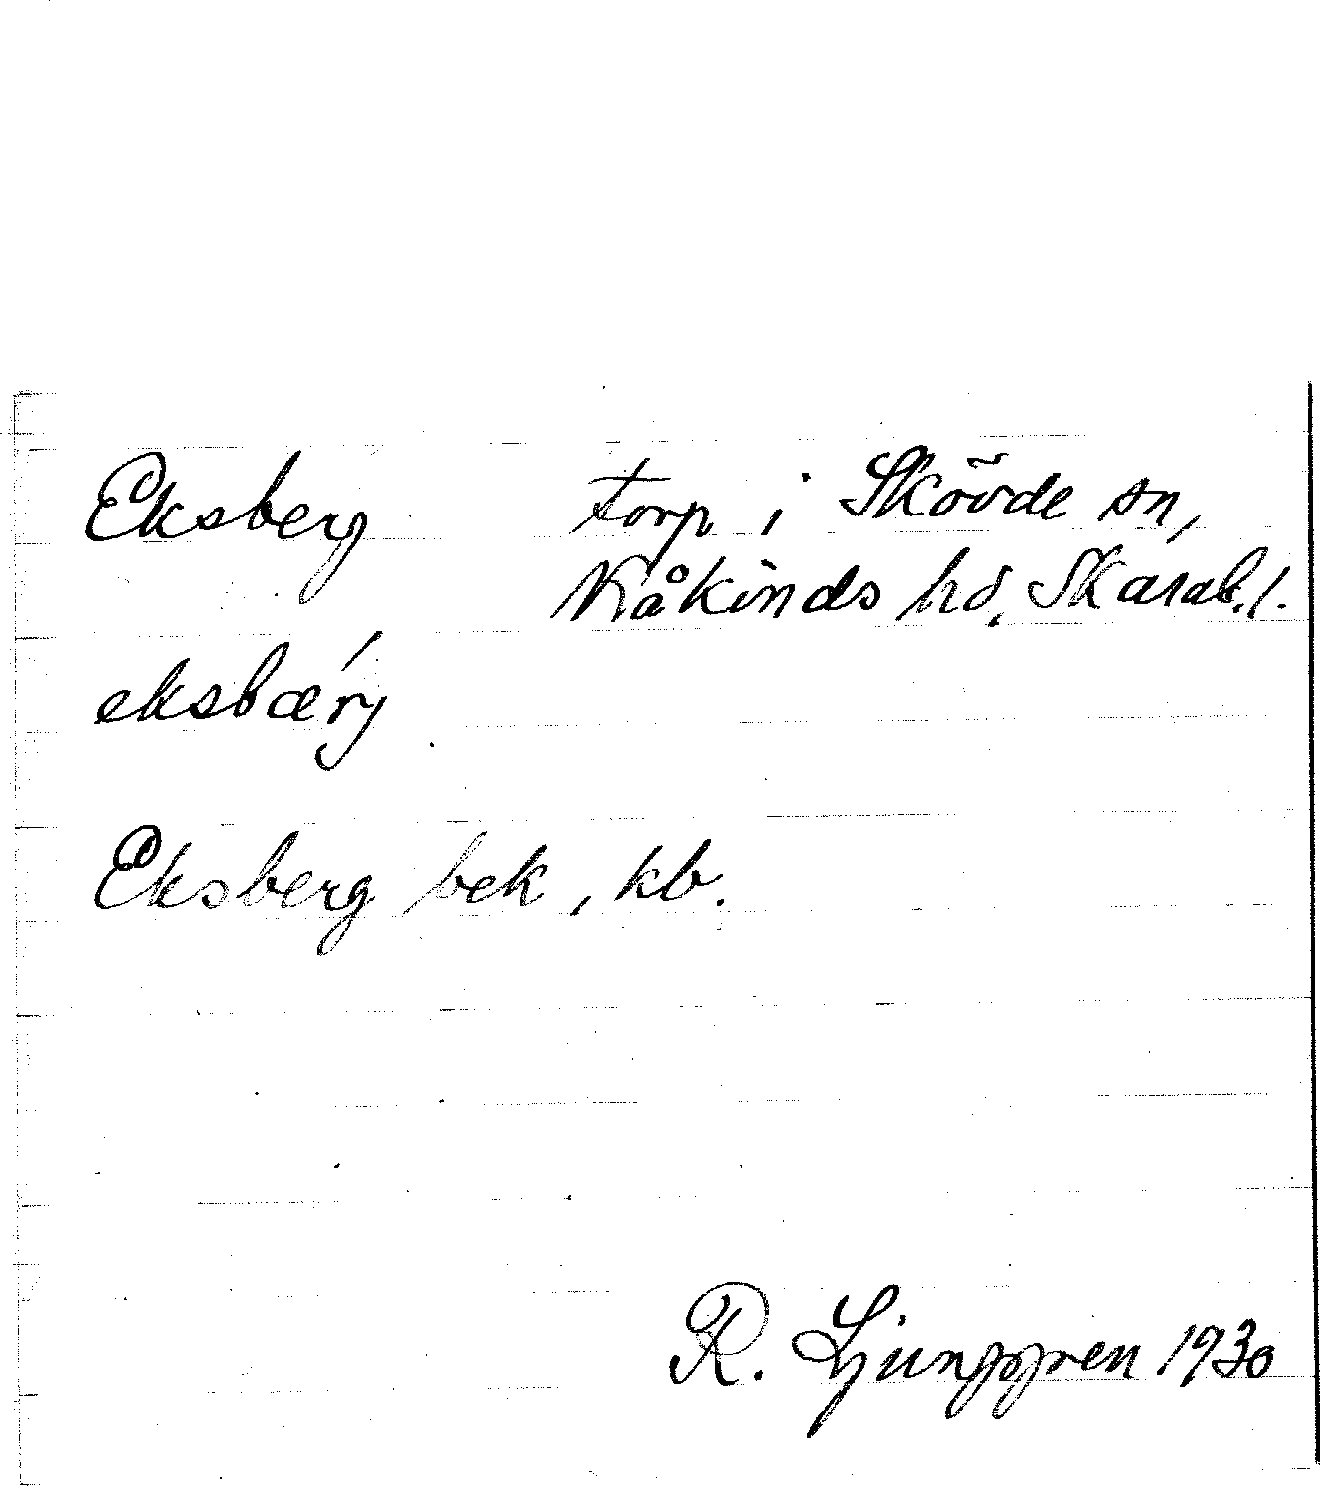 Eksberg torp i Skövde sn,
Kåkinds hd, Skarab. l.
eksbæ´rj
Eksberg bek, kb.
R. Ljunggren 1930